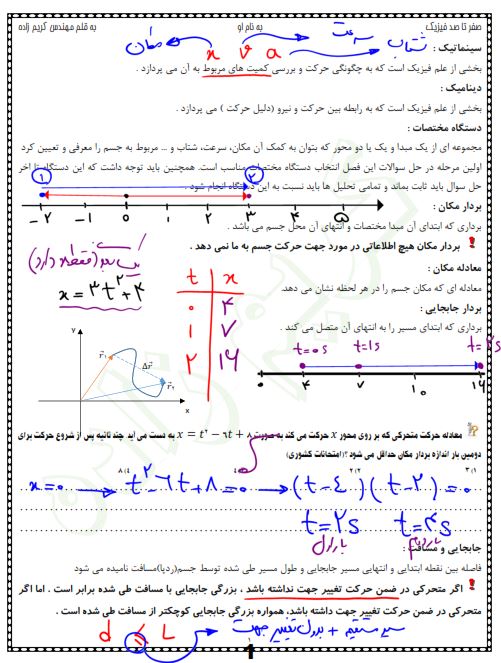 صفر تا صد فیزیک به نام او به قلم مهندس کریم زاده
مکان x v a سرعت شتاب
سینماتیک :
بخشی از علم فیزیک است که به چگونگی حرکت و بررسی کمیت های مربوط به آن می پردازد .
دینامیک :
بخشی از علم فیزیک است که به رابطه بین حرکت و نیرو (دلیل حرکت ) می پردازد .
دستگاه مختصات :
مجموعه ای از یک مبدا و یک یا دو محور که بتوان به کمک آن مکان، سرعت، شتاب و ... مربوط به جسم را معرفی و تعیین کرد
اولین مرحله در حل سوالات این فصل انتخاب دستگاه مختصات مناسب است. همچنین باید توجه داشت که این دستگاه تا آخر
حل سوال باید ثابت بماند و تمامی تحلیل ها باید نسبت به این دستگاه انجام شود .
۱ ۲
بردار مکان :
-۲ -۱ ۰ ۱ ۲ ۳ ۴ ۵
برداری که ابتدای آن مبدا مختصات و انتهای آن محل جسم می باشد .
بردار مکان هیچ اطلاعاتی در مورد جهت حرکت جسم به ما نمی دهد .
معادله مکان :
معادله ای که مکان جسم را در هر لحظه نشان می دهد.
x = ۳t² + ۴
t x
۰ ۴
۱ ۷
۲ ۱۶
بردار جابجایی :
برداری که ابتدای مسیر را به انتهای آن متصل می کند .
t=۰s t=۱s t=۲s
۰ ۴ ۷ ۱۰ ۱۶
y
r⃗۱ Δr⃗ r⃗۲
x
معادله حرکت متحرکی که بر روی محور x حرکت می کند به صورت x = t² − ۶t + ۸ به دست می آید. چند ثانیه پس از شروع حرکت برای
دومین بار اندازه بردار مکان حداقل می شود ؟(امتحانات کشوری)
x=۰ → t² − ۶t + ۸ = ۰ → (t−۴)(t−۲) = ۰
t=۲s t=۴s
بار اول بار دوم
جابجایی و مسافت :
فاصله بین نقطه ابتدایی و انتهایی مسیر جابجایی و طول مسیر طی شده توسط جسم(ردپا)مسافت نامیده می شود
اگر متحرکی در ضمن حرکت تغییر جهت نداشته باشد ، بزرگی جابجایی با مسافت طی شده برابر است . اما اگر
متحرکی در ضمن حرکت تغییر جهت داشته باشد، همواره بزرگی جابجایی کوچکتر از مسافت طی شده است .
d ≤ L مسیر مستقیم + بدون تغییر جهت
1